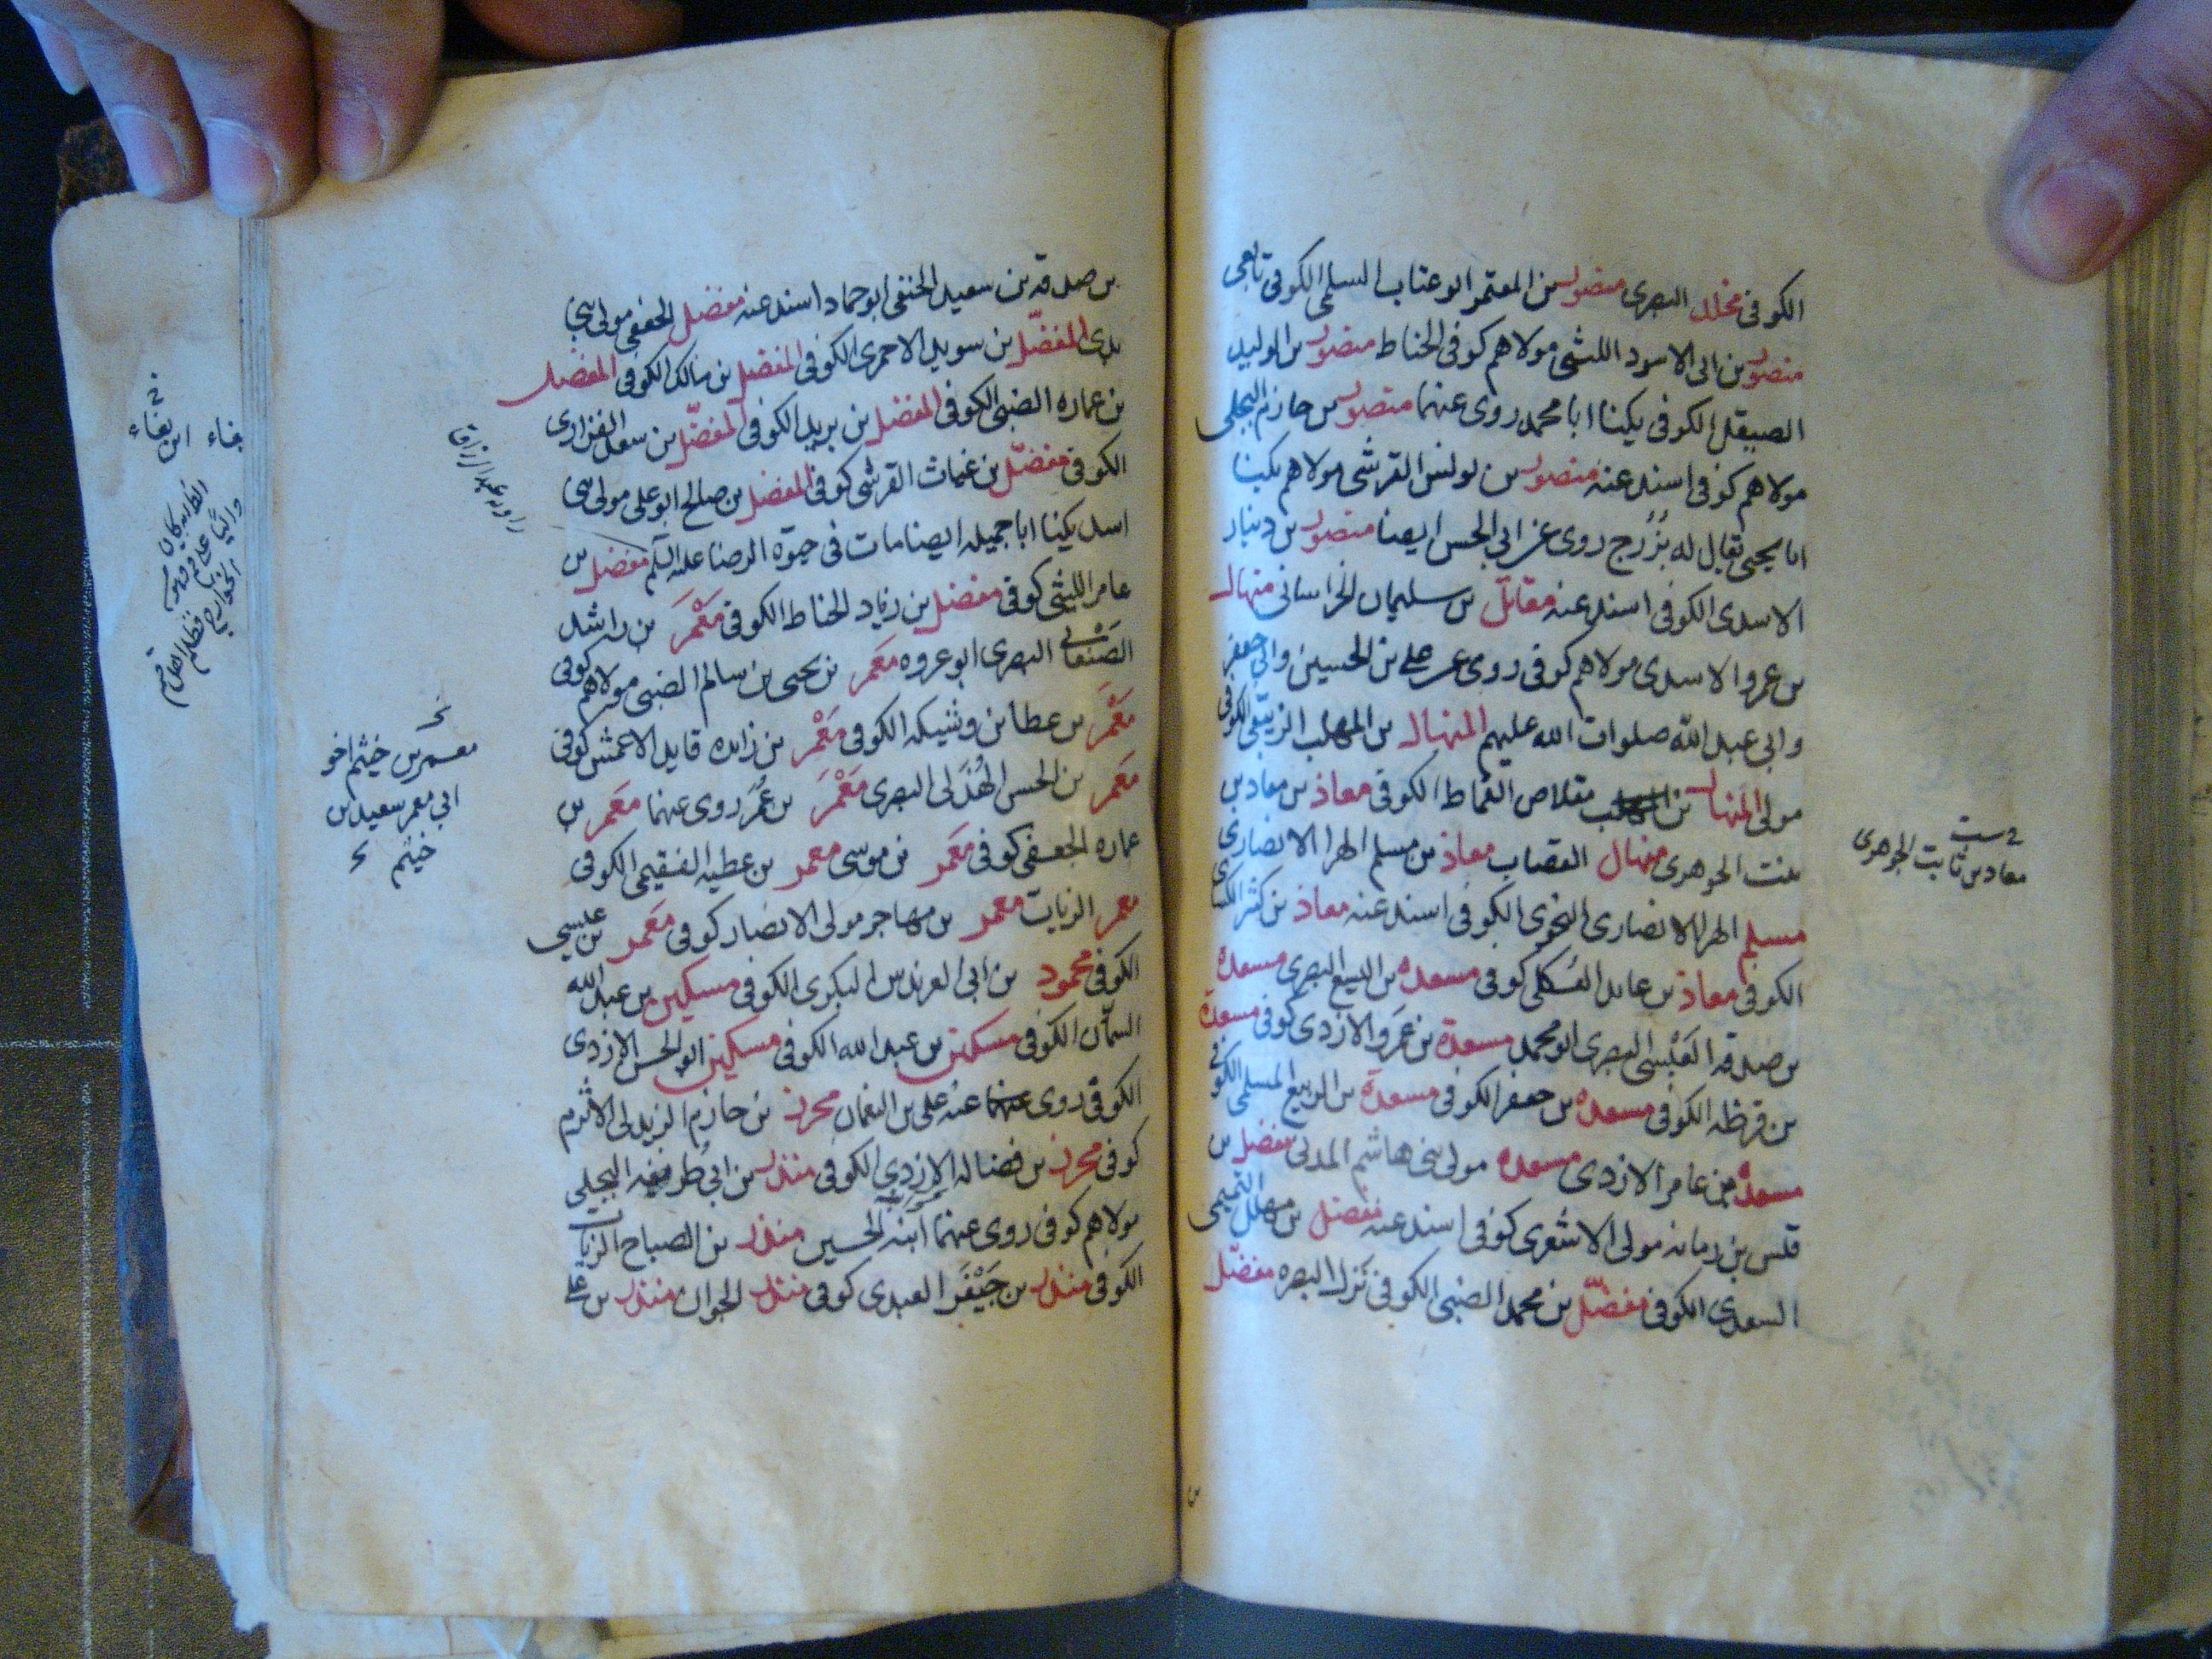 الكوفى مخلد البصرى منصور بن المعتمر ابو عتاب السلمى الكوفى تابعى
منصور بن ابى الاسود الليثى مولاهم كوفى الخياط منصور بن الوليد
الصيقل الكوفى يكنا ابا محمد روى عنهما منصور بن حازم البجلى
مولاهم كوفى اسند عنه منصور بن يونس القرشى مولاهم يكنا
ابا يحيى يقال له بُزُرج روى عن ابى الحسن ايضا منصور بن دينار
الاسدى الكوفى اسند عنه مقاتل بن سليمان الخراسانى منهال
بن عمرو الاسدى مولاهم كوفى روى عن على بن الحسين وابى جعفر
وابى عبد الله صلوات الله عليهم المنهال بن المهلب الكوفى
مولى المنهال بن مقلاص القماط الكوفى معاذ بن معاد بن
الجوهرى منهال القصاب معاذ بن مسلم الهرا الانصارى
مسلم الهرا الانصارى النحوى الكوفى اسند عنه معاذ بن كثير
الكوفى معاذ بن عابد العُكلى كوفى مسعده بن اليسع البصرى مسعدة
بن صدقه العَبْسى البصرى ابو محمد مسعدة بن عمرو الازدى كوفى مسعدة
بن قرظه الكوفى مسعده بن جعفر الكوفى مسعدة بن الربيع المسلمى الكوفى
مسعده بن عامر الازدى مسعده مولى بنى هاشم المدنى مفضل بن
قيس بن رمانه مولى الاشعرى كوفى اسند عنه مفضل بن مهلل التميمى
السعدى الكوفى مفضّل بن محمد الضبى الكوفى نزل البصره مفضّل
معاد بن ثابت الجوهرى
بن صدقه بن سعيد الحنفى ابو حماد اسند عنه مفضل الجعفى مولى بنى
المفضّل بن سويد الاحمرى الكوفى المفضل بن مالك الكوفى المفضل
بن عماره الضبى الكوفى المفضل بن يزيد الكوفى المفضّل بن سعد الفزارى
الكوفى مفضّل بن غياث القرشى كوفى المفضل بن صالح ابو على مولى بنى
اسد يكنا ابا جميله ايضا مات فى حيوة الرضا عليه السلم مفضل بن
عامر الليثى كوفى مفضل بن زياد الخياط الكوفى مَعْمَر بن راشد
الصَنْعانى البصرى ابو عروه معمر بن يحيى بن سالم الضبى مولاهم كوفى
مَعْمَر بن عطا بن وشيكه الكوفى مَعْمَر بن زائده قايد الاعمش كوفى
معمر بن الحسن الهُذَلى البصرى مَعْمَر بن عُمَر روى عنهما معمر بن
عماره الجعفى كوفى معمر بن موسى معمر بن عطيه الفقيمى الكوفى
معمر الزيات معمر بن مهاجر مولى الانصار كوفى معمر بن عيسى
الكوفى محمود بن ابى العرندس البكرى الكوفى مسكين بن عبد الله
السمّان الكوفى مسكين بن عبد الله الكوفى مسكين ابو الحسن الازدى
الكوفى روى عنهما عنه على بن النعمان محرز بن حازم
كوفى محرز بن فضاله الازدى الكوفى منذر بن ابى طريفه البجلى
مولاهم كوفى روى عنهما ابنه الحسين منذر بن الصباح الزيات
الكوفى منذر بن جَيْفَر العبدى كوفى منذر الجوان منذر بن على
راويه عبد الرزاق
معمر بن خيثم اخو
ابى معمر سعيد بن
خيثم
بغاء ابن بغاء